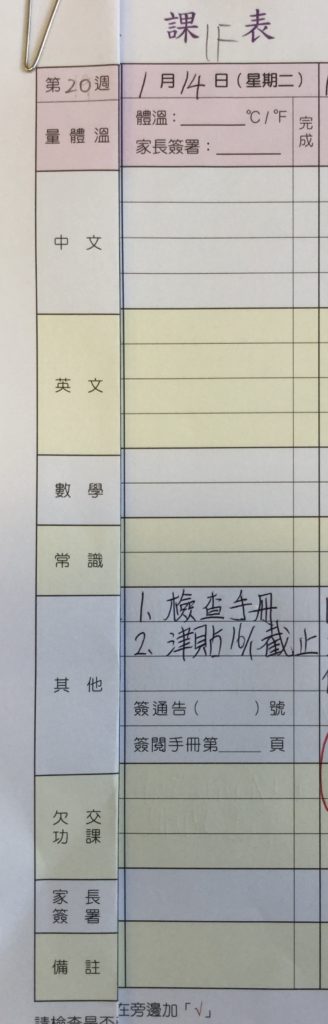 課表
1F
第20週
1月14日(星期二)
量體溫
體溫：______℃/℉
家長簽署：______
完成
中文
英文
數學
常識
其他
1、檢查手冊
2、津貼16/1截止
簽通告( )號
簽閱手冊第____頁
欠交
功課
家長
簽署
備註
請檢查是否
在旁邊加「√」